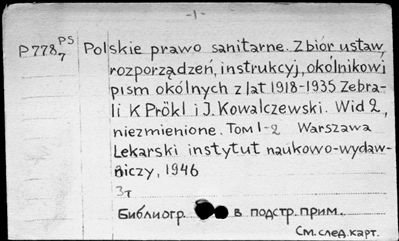 -1-
P778 PS/7 Polskie prawo sanitarne. Zbiór ustaw,
rozporządzeń, instrukcyj, okólników i
pism okólnych z lat 1918-1935 Zebra-
li K Prökl i J. Kowalczewski. Wid 2,
niezmienione. Том 1-2 Warszawa
Lekarski instytut naukowo-wydaw-
niczy, 1946
3т
Библиогр в подстр. прим.
См. след. карт.